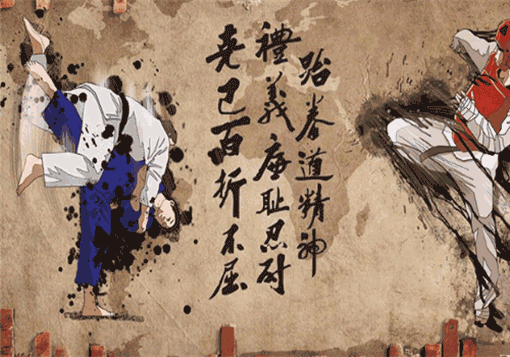 跆拳道精神
禮義廉耻忍耐
克己百折不屈